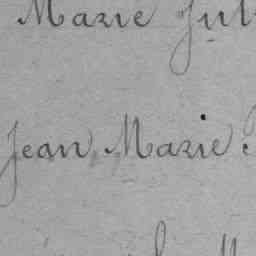 Marie Jul
Jean Marie